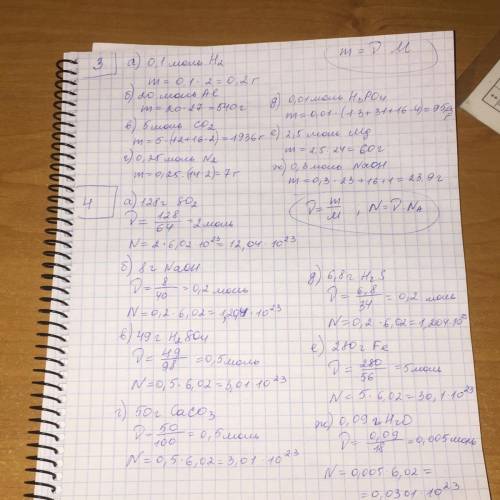 3
а) 0,1 моль H₂
m = 0,1 · 2 = 0,2 г
б) 20 моль Al
m = 20 · 27 = 540 г
в) 5 моль CO₂
m = 5 · (12 + 16 · 2) = 1936 г
г) 0,25 моль N₂
m = 0,25 · (14 · 2) = 7 г
m = ν · M
д) 0,01 моль H₃PO₄
m = 0,01 · (1 · 3 + 31 + 16 · 4) =
е) 2,5 моль Mg
m = 2,5 · 24 = 60 г
ж) 0,3 моль NaOH
m = 0,3 · 23 + 16 + 1 = 23,9 г
4
а) 128 г SO₂
ν = 128/64 = 2 моль
N = 2 · 6,02 · 10²³ = 12,04 · 10²³
б) 8 г NaOH
ν = 8/40 = 0,2 моль
N = 0,2 · 6,02 = 1,204 · 10²³
в) 49 г H₂SO₄
ν = 49/98 = 0,5 моль
N = 0,5 · 6,02 = 3,01 · 10²³
г) 50 г CaCO₃
ν = 50/100 = 0,5 моль
N = 0,5 · 6,02 = 3,01 · 10²³
ν = m/M , N = ν · Nₐ
д) 6,8 г H₂S
ν = 6,8/34 = 0,2 моль
N = 0,2 · 6,02 = 1,204 · 10²³
е) 280 г Fe
ν = 280/56 = 5 моль
N = 5 · 6,02 = 30,1 · 10²³
ж) 0,09 г H₂O
ν = 0,09/18 = 0,005 моль
N = 0,005 · 6,02 =
= 0,0301 · 10²³